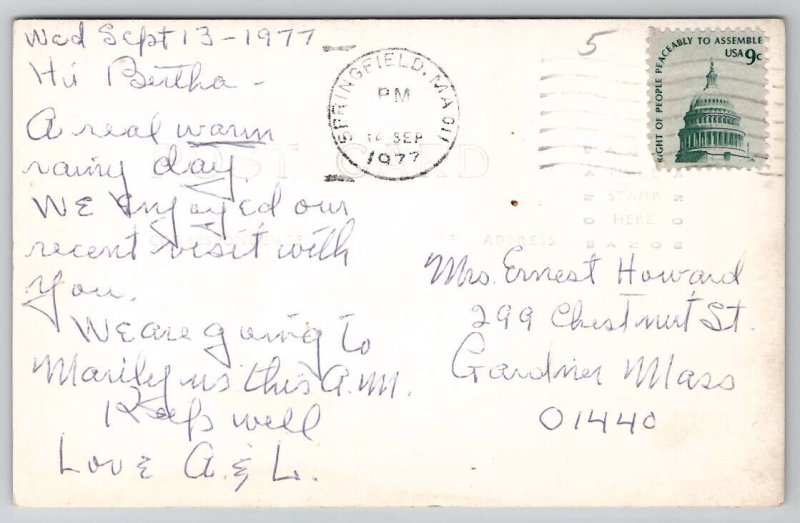 Wed Sept 13-1977
Hi Bertha -
A real warm
rainy day.
We enjoyed our
recent visit with
you.
We are going to
Marilyns this A.M.
Keep well
Love A. & L.
SPRINGFIELD, MA 011
PM
14 SEP
1977
5
RIGHT OF PEOPLE PEACEABLY TO ASSEMBLE
USA 9c
POST CARD
CORRESPONDENCE
ADDRESS
STAMP
HERE
Mrs. Ernest Howard
299 Chestnut St.
Gardner Mass
01440